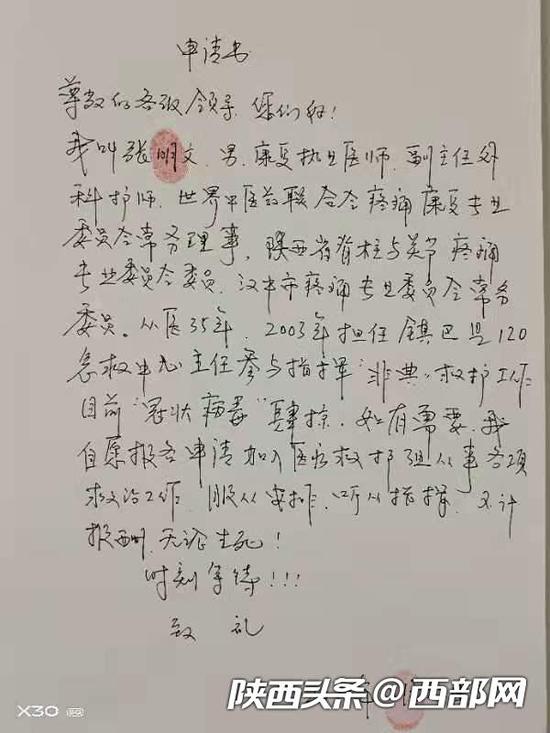 申请书
尊敬的各级领导 您们好！
我叫张明文、男、康复执业医师、副主任外
科护师、世界中医药联合会疼痛康复专业
委员会常务理事、陕西省脊柱与关节疼痛
专业委员会委员、汉中市疼痛专业委员会常务
委员。从医35年、2003年担任镇巴县120
急救中心主任参与指挥"非典"救护工作
目前"冠状病毒"肆掠、如有需要、我
自愿报名申请加入医疗救护组从事各项
救治工作、服从安排、听从指挥、不计
报酬、无论生死！
时刻等待！！！
致 礼
陕西头条@西部网
X30